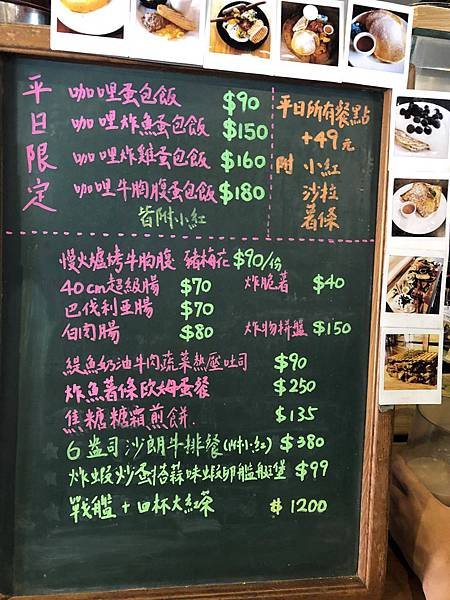 平日限定
咖哩蛋包飯 $90
咖哩炸魚蛋包飯 $150
咖哩炸雞蛋包飯 $160
咖哩牛胸腹蛋包飯 $180
皆附小紅
平日所有餐點
+49元
附 小紅
沙拉
薯條
慢火爐烤牛胸腹 豬梅花 $90/份
40cm超級腸 $70 炸脆薯 $40
巴伐利亞腸 $70
白肉腸 $80 炸物拼盤 $150
緹魚奶油牛肉蔬菜熱壓吐司 $90
炸魚薯條歐姆蛋餐 $250
焦糖糖霜煎餅 $135
6盎司沙朗牛排餐(附小紅) $380
炸蝦炒蛋搭蒜味蝦卵艦艇堡 $99
戰艦+四杯大紅茶 $1200